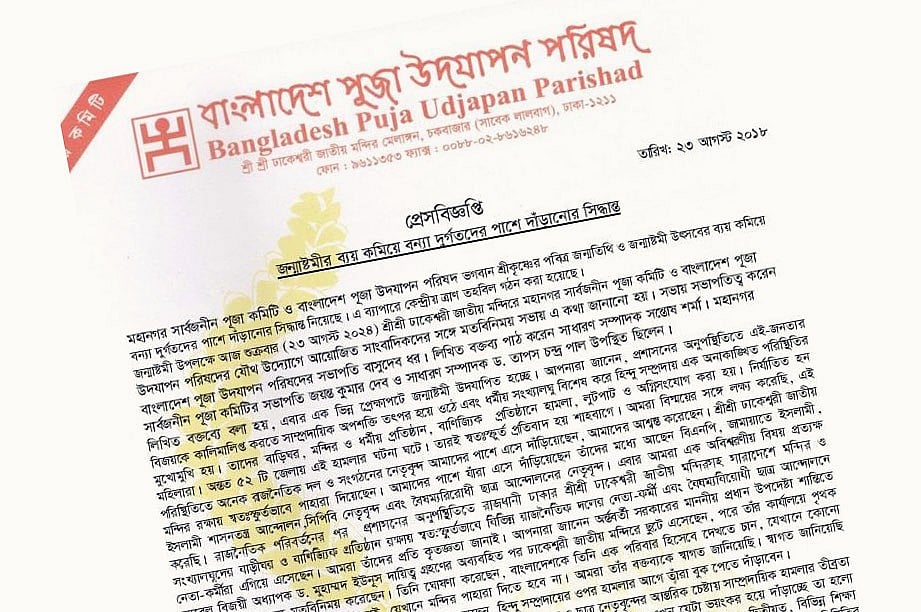 কমিটি
বাংলাদেশ পূজা উদযাপন পরিষদ
Bangladesh Puja Udjapan Parishad
শ্রী শ্রী ঢাকেশ্বরী জাতীয় মন্দির মেলাঙ্গন, চকবাজার (সাবেক লালবাগ), ঢাকা-১২১১
ফোন : ৯৬১১৩৫৩ ফ্যাক্স : ০০৮৮-০২-৮৬১৬২৪৮
তারিখ: ২৩ আগস্ট ২০১৮
প্রেসবিজ্ঞপ্তি
জন্মাষ্টমীর ব্যয় কমিয়ে বন্যা দুর্গতদের পাশে দাঁড়ানোর সিদ্ধান্ত
মহানগর সার্বজনীন পূজা কমিটি ও বাংলাদেশ পূজা উদযাপন পরিষদ ভগবান শ্রীকৃষ্ণের পবিত্র জন্মতিথি ও জন্মাষ্টমী উৎসবের ব্যয় কমিয়ে
বন্যা দুর্গতদের পাশে দাঁড়ানোর সিদ্ধান্ত নিয়েছে। এ ব্যাপারে কেন্দ্রীয় ত্রাণ তহবিল গঠন করা হয়েছে।
জন্মাষ্টমী উপলক্ষে আজ শুক্রবার (২৩ আগস্ট ২০২৪) শ্রীশ্রী ঢাকেশ্বরী জাতীয় মন্দিরে মহানগর সার্বজনীন পূজা কমিটি ও বাংলাদেশ পূজা
উদযাপন পরিষদের যৌথ উদ্যোগে আয়োজিত সাংবাদিকদের সঙ্গে মতবিনিময় সভায় এ কথা জানানো হয়। সভায় সভাপতিত্ব করেন
বাংলাদেশ পূজা উদযাপন পরিষদের সভাপতি বাসুদেব ধর। লিখিত বক্তব্য পাঠ করেন সাধারণ সম্পাদক সন্তোষ শর্মা। মহানগর
সার্বজনীন পূজা কমিটির সভাপতি জয়ন্ত কুমার দেব ও সাধারণ সম্পাদক ড. তাপস চন্দ্র পাল উপস্থিত ছিলেন।
লিখিত বক্তব্যে বলা হয়, এবার এক ভিন্ন প্রেক্ষাপটে জন্মাষ্টমী উদযাপিত হচ্ছে। আপনারা জানেন, প্রশাসনের অনুপস্থিতিতে এই-জনতার
বিজয়কে কালিমালিপ্ত করতে সাম্প্রদায়িক অপশক্তি তৎপর হয়ে ওঠে এবং ধর্মীয় সংখ্যালঘু বিশেষ করে হিন্দু সম্প্রদায় এক অনাকাঙ্ক্ষিত পরিস্থিতির
মুখোমুখি হয়। তাদের বাড়িঘর, মন্দির ও ধর্মীয় প্রতিষ্ঠান, বাণিজ্যিক প্রতিষ্ঠানে হামলা, লুটপাট ও অগ্নিসংযোগ করা হয়। নির্যাতিত হন
মহিলারা। অন্তত ৫২ টি জেলায় এই হামলার ঘটনা ঘটে। তারই স্বতঃস্ফূর্ত প্রতিবাদ হয় শাহবাগে। আমরা বিস্ময়ের সঙ্গে লক্ষ্য করেছি, এই
পরিস্থিতিতে অনেক রাজনৈতিক দল ও সংগঠনের নেতৃবৃন্দ আমাদের পাশে এসে দাঁড়িয়েছেন, আমাদের আশ্বস্ত করেছেন। শ্রীশ্রী ঢাকেশ্বরী জাতীয়
মন্দির রক্ষায় স্বতঃস্ফূর্তভাবে পাহারা দিয়েছেন। আমাদের পাশে যাঁরা এসে দাঁড়িয়েছেন তাঁদের মধ্যে আছেন বিএনপি, জামায়াতে ইসলামী,
ইসলামী শাসনতন্ত্র আন্দোলন,সিপিবি নেতৃবৃন্দ এবং বৈষম্যবিরোধী ছাত্র আন্দোলনের নেতৃবৃন্দ। এবার আমরা এক অবিস্মরণীয় বিষয় প্রত্যক্ষ
করেছি। রাজনৈতিক পরিবর্তনের পর প্রশাসনের অনুপস্থিতিতে রাজধানী ঢাকার শ্রীশ্রী ঢাকেশ্বরী জাতীয় মন্দিরসহ সারাদেশে মন্দির ও
সংখ্যালঘুদের বাড়ীঘর ও বাণিজ্যিক প্রতিষ্ঠান রক্ষায় স্বতঃস্ফূর্তভাবে বিভিন্ন রাজনৈতিক দলের নেতা-কর্মী এবং বৈষম্যবিরোধী ছাত্র আন্দোলনে
নেতা-কর্মীরা এগিয়ে এসেছেন। আমরা তাঁদের প্রতি কৃতজ্ঞতা জানাই। আপনারা জানেন অর্ন্তবর্তী সরকারের মাননীয় প্রধান উপদেষ্টা শান্তিতে
নোবেল বিজয়ী অধ্যাপক ড. মুহাম্মদ ইউনূস দায়িত্ব গ্রহণের অব্যবহিত পর ঢাকেশ্বরী জাতীয় মন্দিরে ছুটে এসেছেন, পরে তাঁর কার্যালয়ে পৃথক
মতবিনিময় করেছেন। তিনি ঘোষণা করেছেন, বাংলাদেশকে তিনি এক পরিবার হিসেবে দেখতে চান, যেখানে কোনো
যেখানে মন্দির পাহারা দিতে হবে না। আমরা তাঁর বক্তব্যকে স্বাগত জানিয়েছি। স্বাগত জানিয়েছি
হিন্দু সম্প্রদায়ের ওপর হামলার আগে তাঁরা বুক পেতে দাঁড়াবেন।
ছাত্র নেতৃবৃন্দের আন্তরিক চেষ্টায় সাম্প্রদায়িক হামলার তীব্রতা
যেটা ভয়ংকর হয়ে দাঁড়াচ্ছে তা হলো
বিভিন্ন শিক্ষা